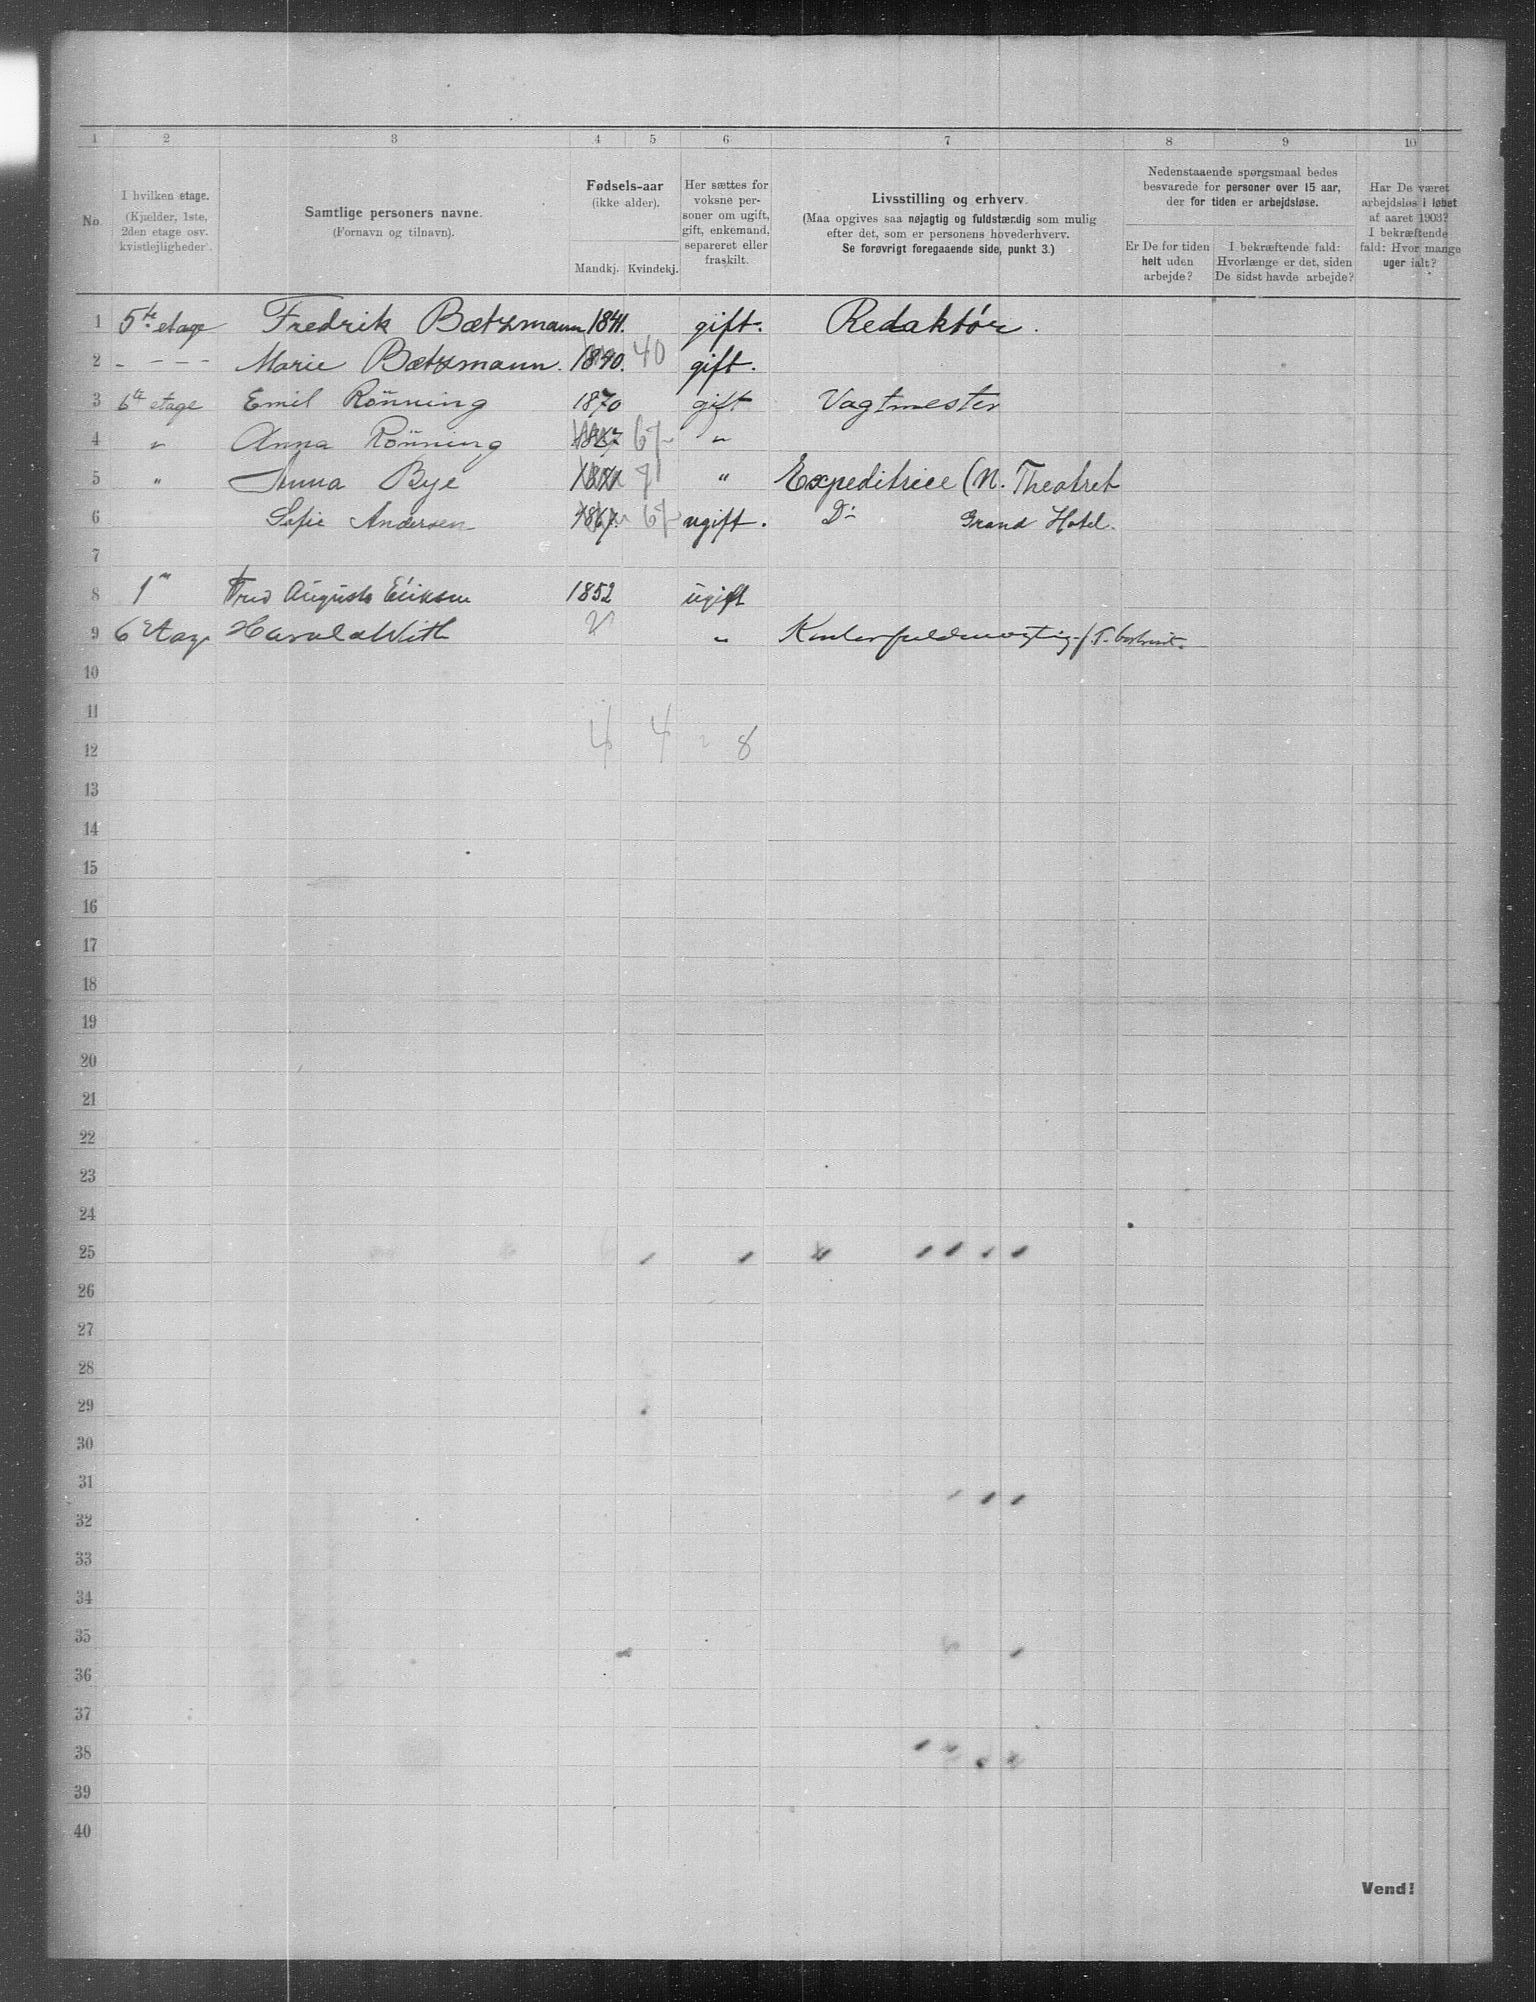 1 2 3 4 5 6 7 8 9 10
No.
I hvilken etage.
(Kjælder, 1ste,
2den etage osv.
kvistlejligheder).
Samtlige personers navne.
(Fornavn og tilnavn).
Fødsels-aar
(ikke alder).
Mandkj. Kvindekj.
Her sættes for
voksne per-
soner om ugift,
gift, enkemand,
separeret eller
fraskilt.
Livsstilling og erhverv.
(Maa opgives saa nøjagtig og fuldstændig som mulig
efter det, som er personens hovederhverv.
Se forøvrigt foregaaende side, punkt 3.)
Nedenstaaende spørgsmaal bedes
besvarede for personer over 15 aar,
der for tiden er arbejdsløse.
Er De for tiden
helt uden
arbejde?
I bekræftende fald:
Hvorlænge er det, siden
De sidst havde arbejde?
Har De været
arbejdsløs i løbet
af aaret 1903?
I bekræftende
fald: Hvor mange
uger ialt?
1 5te etage Fredrik Bætzmann 1841. gift. Redaktør.
2 - - - - Marie Bætzmann. 1840. 40 gift.
3 6te etage Emil Rönning 1870 gift Vagtmester
4 " Anna Rönning 67 "
5 " Anna Bye 71 " Expeditrice (N. Theatret
6 Sofie Andersen 67 ugift. Do Grand Hotel.
7
8 1ste August Eriksen 1852 ugift
9 6 Etage Harald With " Kontorfuldmægtig
10
11
12 4 4 8
13
14
15
16
17
18
19
20
21
22
23
24
25
26
27
28
29
30
31
32
33
34
35
36
37
38
39
40
Vend!